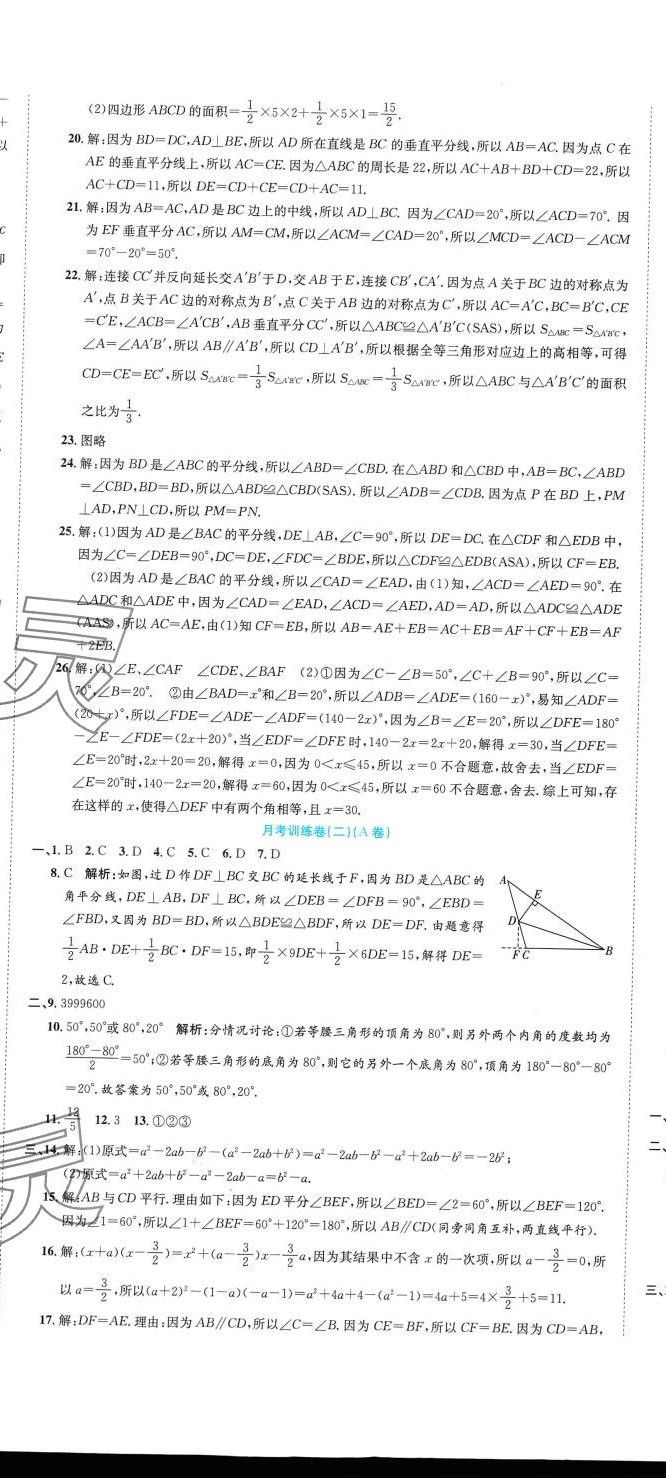 (2)四边形 ABCD 的面积=1/2×5×2+1/2×5×1=15/2.
20. 解:因为 BD=DC,AD⊥BE,所以 AD 所在直线是 BC 的垂直平分线,所以 AB=AC. 因为点 C 在
AE 的垂直平分线上,所以 AC=CE. 因为△ABC 的周长是 22,所以 AC+AB+BD+CD=22,所以
AC+CD=11,所以 DE=CD+CE=CD+AC=11.
21. 解:因为 AB=AC,AD 是 BC 边上的中线,所以 AD⊥BC. 因为∠CAD=20°,所以∠ACD=70°. 因
为 EF 垂直平分 AC,所以 AM=CM,所以∠ACM=∠CAD=20°,所以∠MCD=∠ACD-∠ACM
=70°-20°=50°.
22. 解:连接 CC′并反向延长交 A′B′于 D,交 AB 于 E,连接 CB′,CA′. 因为点 A 关于 BC 边的对称点为
A′,点 B 关于 AC 边的对称点为 B′,点 C 关于 AB 边的对称点为 C′,所以 AC=A′C,BC=B′C,CE
=C′E,∠ACB=∠A′CB′,AB 垂直平分 CC′,所以△ABC≌△A′B′C(SAS),所以 S△ABC=S△A′B′C,
∠A=∠AA′B′,所以 AB∥A′B′,所以 CD⊥A′B′,所以根据全等三角形对应边上的高相等,可得
CD=CE=EC′,所以 S△A′B′C=1/3S△A′B′C′,所以 S△ABC=1/3S△A′B′C′,所以△ABC 与△A′B′C′的面积
之比为1/3.
23. 图略
24. 解:因为 BD 是∠ABC 的平分线,所以∠ABD=∠CBD. 在△ABD 和△CBD 中,AB=BC,∠ABD
=∠CBD,BD=BD,所以△ABD≌△CBD(SAS). 所以∠ADB=∠CDB. 因为点 P 在 BD 上,PM
⊥AD,PN⊥CD,所以 PM=PN.
25. 解:(1)因为 AD 是∠BAC 的平分线,DE⊥AB,∠C=90°,所以 DE=DC. 在△CDF 和△EDB 中,
因为∠C=∠DEB=90°,DC=DE,∠FDC=∠BDE,所以△CDF≌△EDB(ASA),所以 CF=EB.
(2)因为 AD 是∠BAC 的平分线,所以∠CAD=∠EAD,由(1)知,∠ACD=∠AED=90°. 在
△ADC 和△ADE 中,因为∠CAD=∠EAD,∠ACD=∠AED,AD=AD,所以△ADC≌△ADE
(AAS),所以 AC=AE,由(1)知 CF=EB,所以 AB=AE+EB=AC+EB=AF+CF+EB=AF
+2EB.
26. 解:(1)∠E、∠CAF ∠CDE、∠BAF (2)①因为∠C-∠B=50°,∠C+∠B=90°,所以∠C=
70°,∠B=20°. ②由∠BAD=x°和∠B=20°,所以∠ADB=∠ADE=(160-x)°,易知∠ADF=
(20+x)°,所以∠FDE=∠ADE-∠ADF=(140-2x)°,因为∠B=∠E=20°,所以∠DFE=180°
-∠E-∠FDE=(2x+20)°,当∠EDF=∠DFE 时,140-2x=2x+20,解得 x=30,当∠DFE=
∠E=20°时,2x+20=20,解得 x=0,因为 0<x≤45,所以 x=0 不合题意,故舍去,当∠EDF=
∠E=20°时,140-2x=20,解得 x=60,因为 0<x≤45,所以 x=60 不合题意,舍去. 综上可知,存
在这样的 x,使得△DEF 中有两个角相等,且 x=30.
月考训练卷(二)(A 卷)
一、1. B 2. C 3. D 4. C 5. C 6. D 7. D
8. C 解析:如图,过 D 作 DF⊥BC 交 BC 的延长线于 F,因为 BD 是△ABC 的
角平分线,DE⊥AB,DF⊥BC,所以∠DEB=∠DFB=90°,∠EBD=
∠FBD,又因为 BD=BD,所以△BDE≌△BDF,所以 DE=DF. 由题意得
1/2AB·DE+1/2BC·DF=15,即1/2×9DE+1/2×6DE=15,解得 DE=
2,故选 C.
A
E
D
F C
B
二、9. 3999600
10. 50°,50°或 80°,20° 解析:分情况讨论:①若等腰三角形的顶角为 80°,则另外两个内角的度数均为
(180°-80°)/2=50°;②若等腰三角形的底角为 80°,则它的另外一个底角为 80°,顶角为 180°-80°-80°
=20°. 故答案为 50°,50°或 80°,20°.
11. 12/5 12. 3 13. ①②③
三、14. 解:(1)原式=a²-2ab-b²-(a²-2ab+b²)=a²-2ab-b²-a²+2ab-b²=-2b²;
(2)原式=a²+2ab+b²-a²-2ab-a=b²-a.
15. 解:AB 与 CD 平行. 理由如下:因为 ED 平分∠BEF,所以∠BED=∠2=60°,所以∠BEF=120°.
因为∠1=60°,所以∠1+∠BEF=60°+120°=180°,所以 AB∥CD(同旁同角互补,两直线平行).
16. 解:(x+a)(x-3/2)=x²+(a-3/2)x-3/2a,因为其结果中不含 x 的一次项,所以 a-3/2=0,所
以 a=3/2,所以(a+2)²-(1-a)(-a-1)=a²+4a+4-(a²-1)=4a+5=4×3/2+5=11.
17. 解:DF=AE. 理由:因为 AB∥CD,所以∠C=∠B. 因为 CE=BF,所以 CF=BE. 因为 CD=AB,